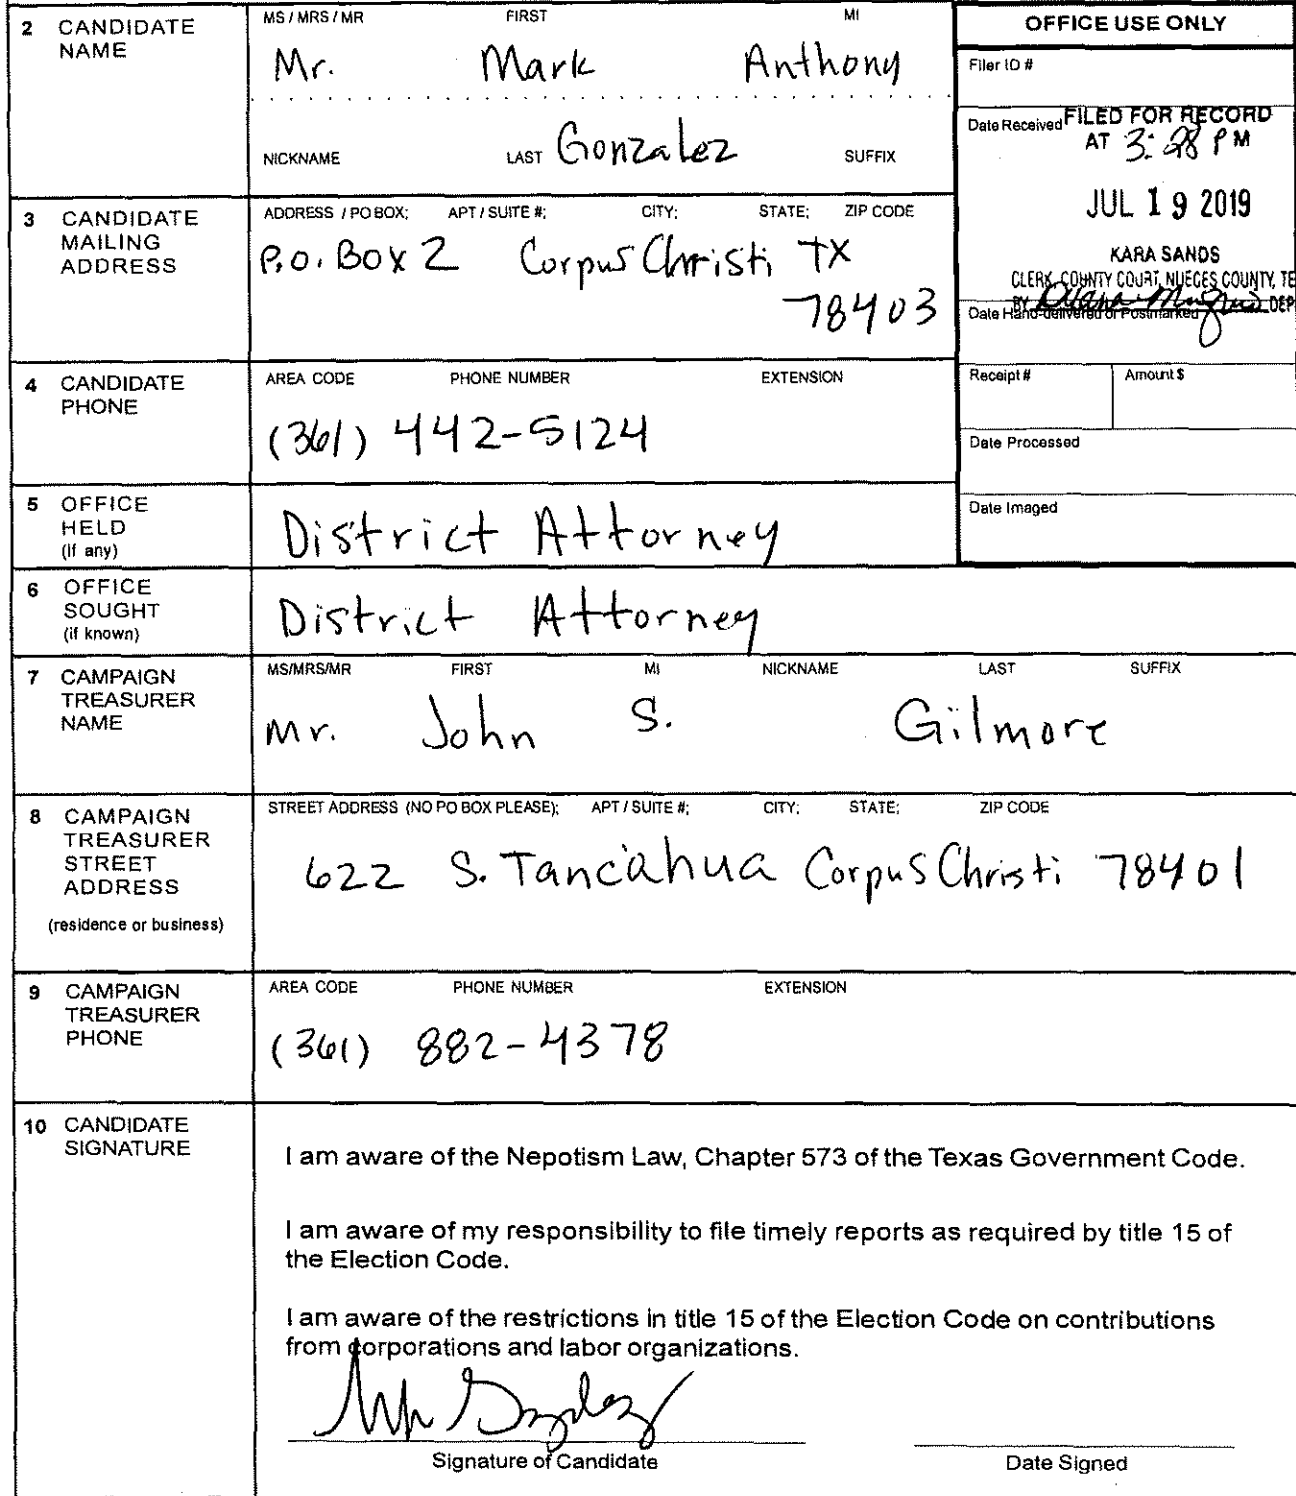 2 CANDIDATE NAME
MS / MRS / MR FIRST MI
Mr. Mark Anthony
NICKNAME LAST Gonzalez SUFFIX
OFFICE USE ONLY
Filer ID #
Date Received FILED FOR RECORD
AT 3:28 PM
JUL 19 2019
KARA SANDS
CLERK, COUNTY COURT, NUECES COUNTY, TE
BY DEP
Date Hand-delivered or Postmarked
Receipt # Amount $
Date Processed
Date Imaged
3 CANDIDATE MAILING ADDRESS
ADDRESS / PO BOX; APT / SUITE #; CITY; STATE; ZIP CODE
P.O. Box 2 Corpus Christi TX
78403
4 CANDIDATE PHONE
AREA CODE PHONE NUMBER EXTENSION
(361) 442-5124
5 OFFICE HELD (if any)
District Attorney
6 OFFICE SOUGHT (if known)
District Attorney
7 CAMPAIGN TREASURER NAME
MS/MRS/MR FIRST MI NICKNAME LAST SUFFIX
Mr. John S. Gilmore
8 CAMPAIGN TREASURER STREET ADDRESS
(residence or business)
STREET ADDRESS (NO PO BOX PLEASE); APT / SUITE #; CITY; STATE; ZIP CODE
622 S. Tancahua Corpus Christi 78401
9 CAMPAIGN TREASURER PHONE
AREA CODE PHONE NUMBER EXTENSION
(361) 882-4378
10 CANDIDATE SIGNATURE
I am aware of the Nepotism Law, Chapter 573 of the Texas Government Code.
I am aware of my responsibility to file timely reports as required by title 15 of
the Election Code.
I am aware of the restrictions in title 15 of the Election Code on contributions
from corporations and labor organizations.
Signature of Candidate Date Signed